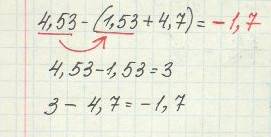 4,53-(1,53+4,7)=-1,7
4,53-1,53=3
3-4,7=-1,7